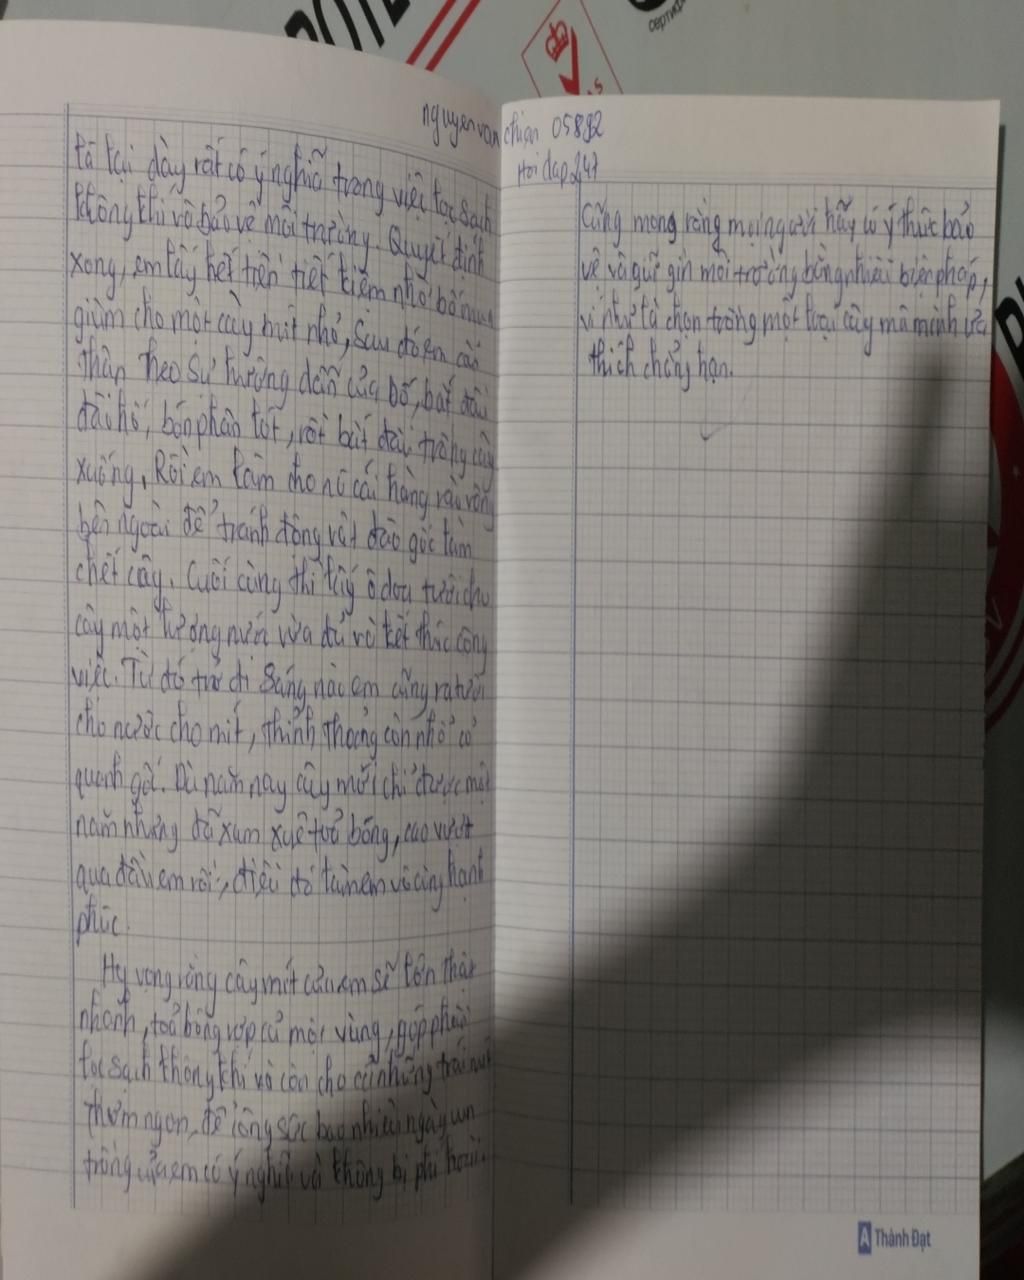 nguyenvan chien 05892
Hoi dap 247
tả lại đây rất có ý nghĩa trong việc lọc sạch
không khí và bảo vệ môi trường. Quyết định
xong, em lấy hết tiền tiết kiệm nhờ bố mua
giùm cho một cây mít nhỏ, sau đó em cẩn
thận theo sự hướng dẫn của bố, bắt đầu
đào hố, bón phân lót, rồi bắt đầu trồng cây
xuống. Rồi em làm cho nó cái hàng rào vòng
bên ngoài để tránh động vật đào gốc làm
chết cây. Cuối cùng thì lấy ô doa tưới cho
cây một lượng nước vừa đủ và kết thúc công
việc. Từ đó trở đi sáng nào em cũng ra tưới
cho nước cho mít, thỉnh thoảng còn nhổ cỏ
quanh gốc. Dù năm nay cây mới chỉ được một
năm nhưng đã xum xuê toả bóng, cao vượt
qua đầu em rồi, điều đó làm em vô cùng hạnh
phúc.
Hy vọng rằng cây mít của em sẽ lớn thật
nhanh, toả bóng rợp cả một vùng, góp phần
lọc sạch không khí và còn cho cả những trái mít
thơm ngon, để công sức bao nhiêu ngày vun
trồng của em có ý nghĩa và không bị phí hoài.
Cũng mong rằng mọi người hãy có ý thức bảo
vệ và giữ gìn môi trường bằng nhiều biện pháp,
ví như là chọn trồng một loại cây mà mình ưa
thích chẳng hạn.
A Thành Đạt